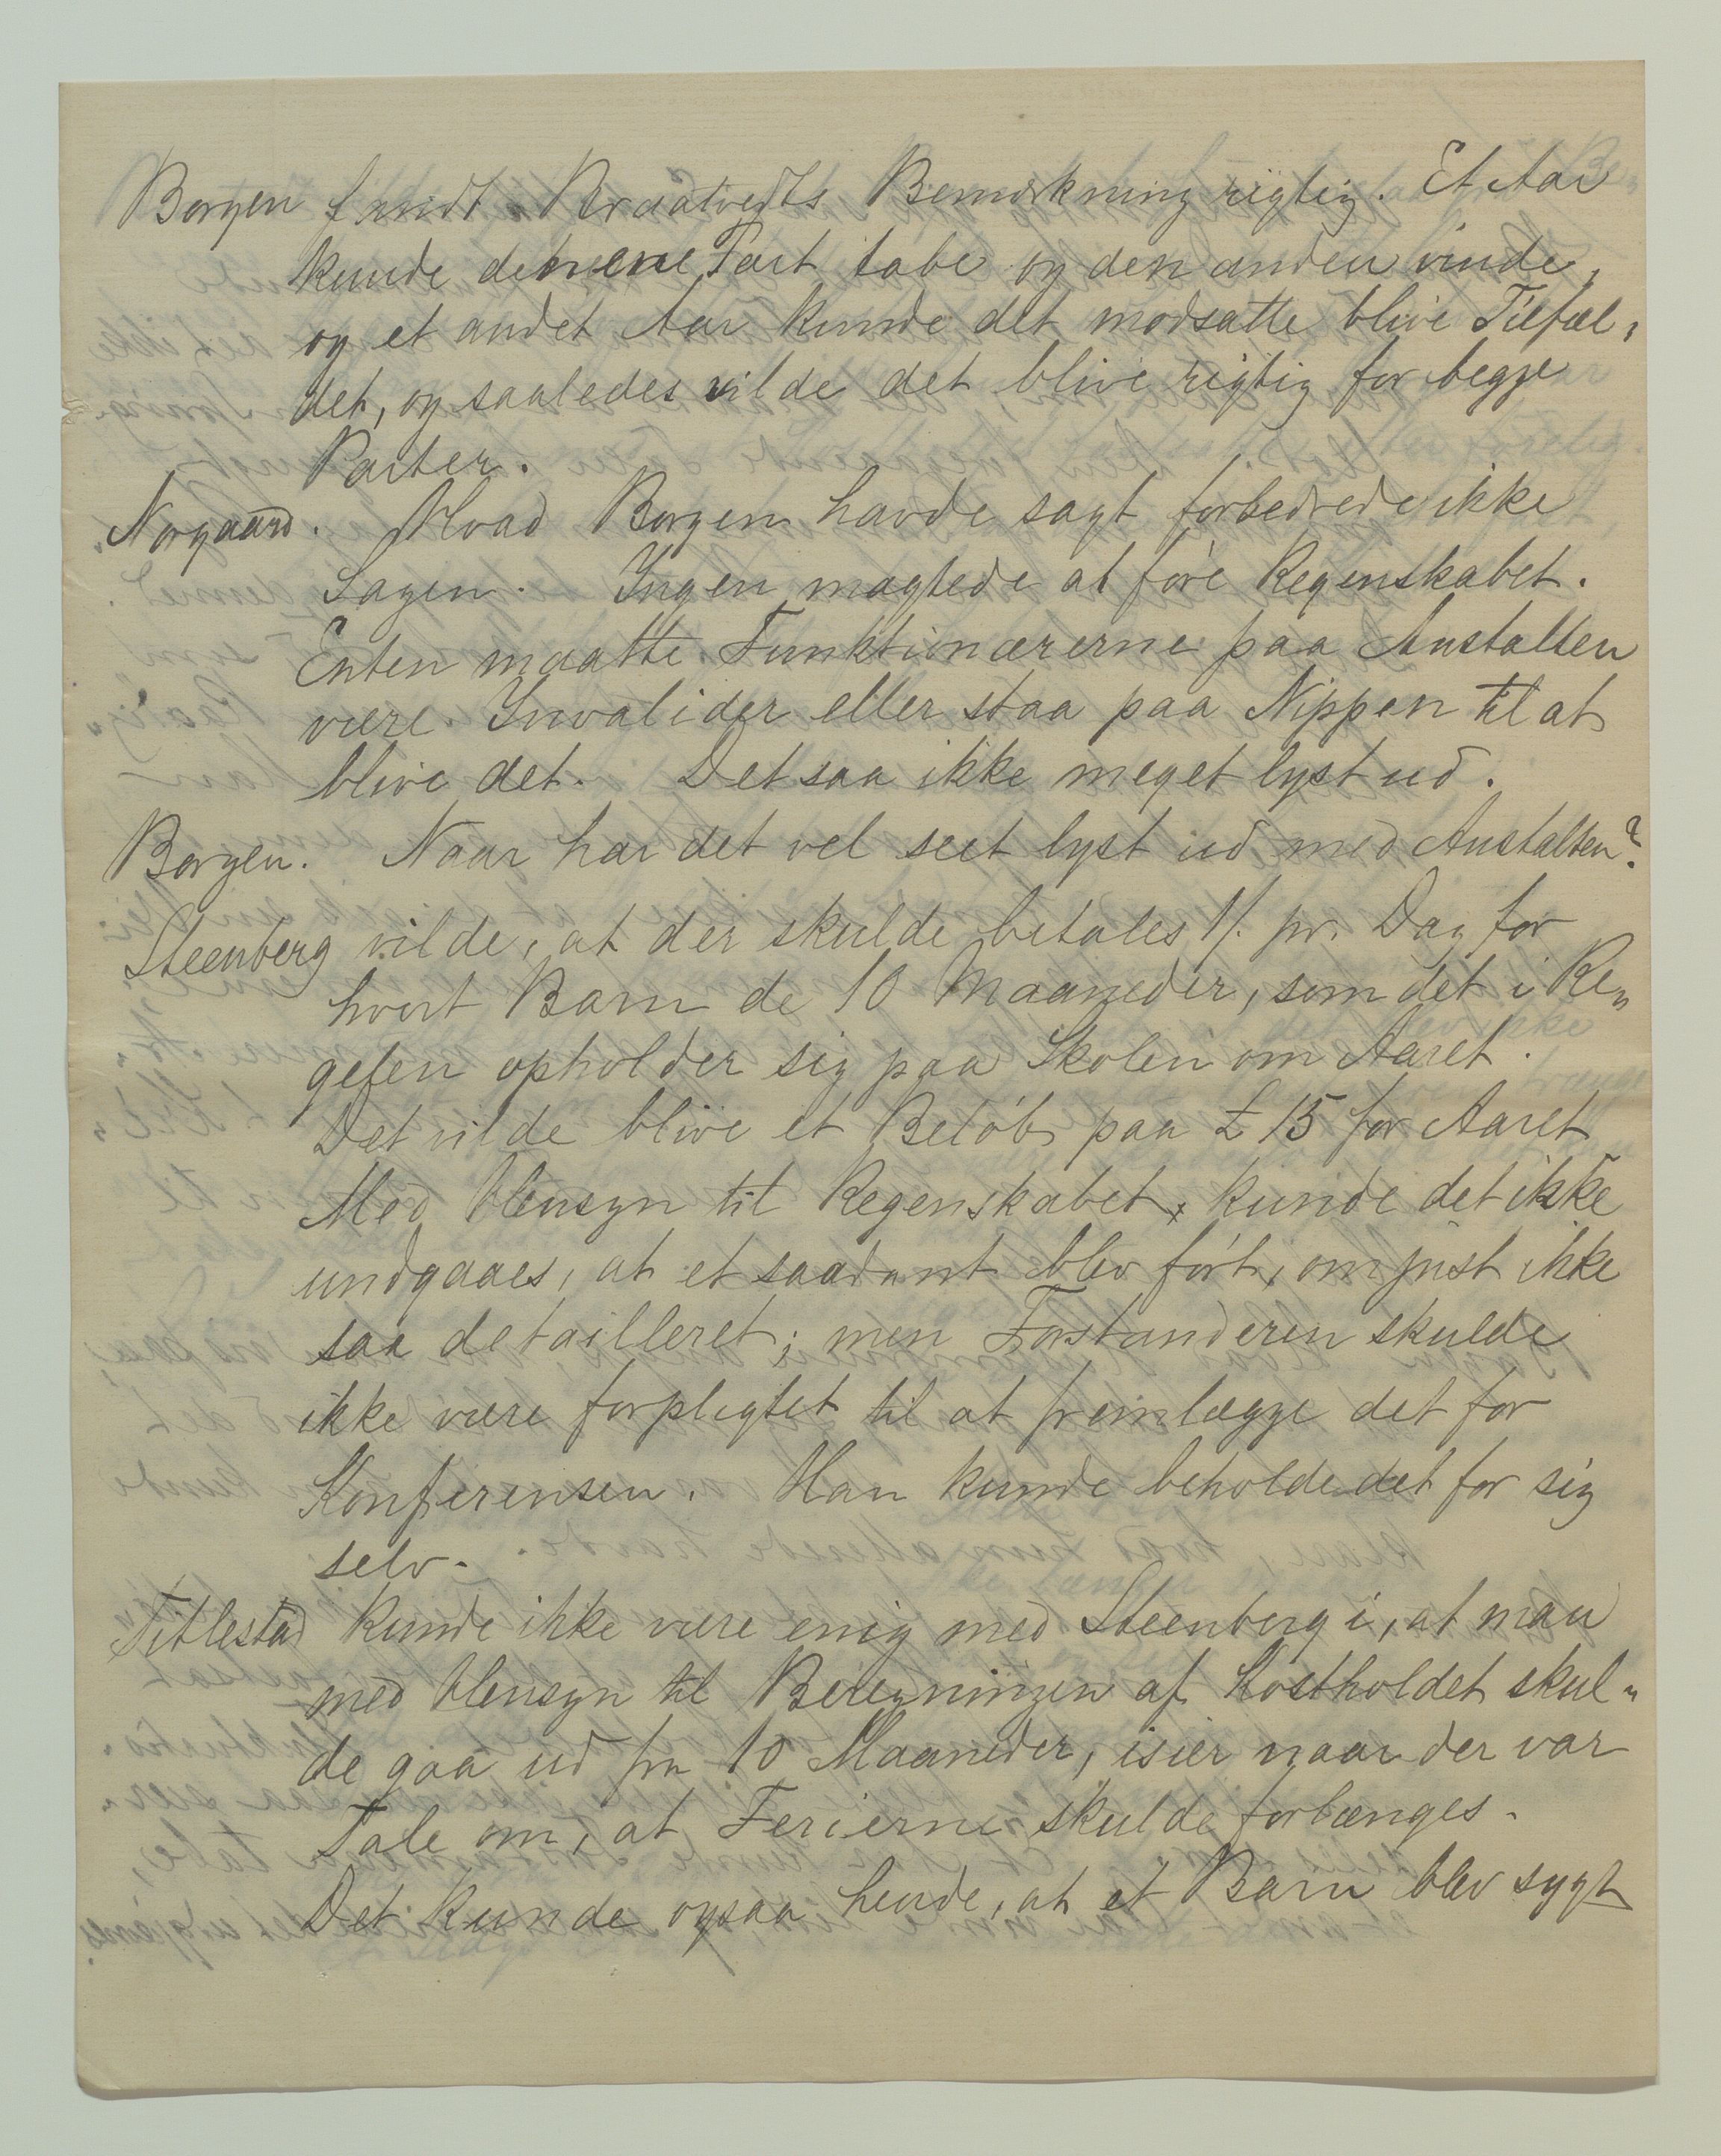 Borgen fandt Kraatvedts Bemærkning rigtig. Et Aar
kunde den ene Part tabe og den anden vinde,
og et andet Aar kunde det modsatte blive Tilfæl„
det, og saaledes vilde det blive rigtig for begge
Parter.
Norgaard. Hvad Borgen havde sagt forbedrede ikke
Sagen. Ingen magtede at føre Regnskabet.
Enten maatte Funktionærerne paa Anstalten
være Invalider eller staa paa Nippen til at
blive det. Det saa ikke meget lyst ud.
Borgen. Naar har det vel seet lyst ud med Anstalten?
Steenberg vilde, at der skulde betales 1/. pr. Dag for
hvert Barn de 10 Maaneder, som det i Re„
gelen opholder sig paa Skolen om Aaret.
Det vilde blive et Beløb paa £ 15 for Aaret
Med Hensyn til Regenskabet, kunde det ikke
undgaaes, at et saadant blev ført, om just ikke
saa detailleret; men Forstanderen skulde
ikke være forpligtet til at fremlægge det for
Konferensen. Han kunde beholde det for sig
selv.
Titlestad kunde ikke være enig med Steenberg i, at man
med Hensyn til Beregningen af Kostholdet skul„
de gaa ud fra 10 Maaneder, især naar der var
Tale om, at Ferierne skulde forlænges.
Det kunde ogsaa hende, at et Barn blev sygt